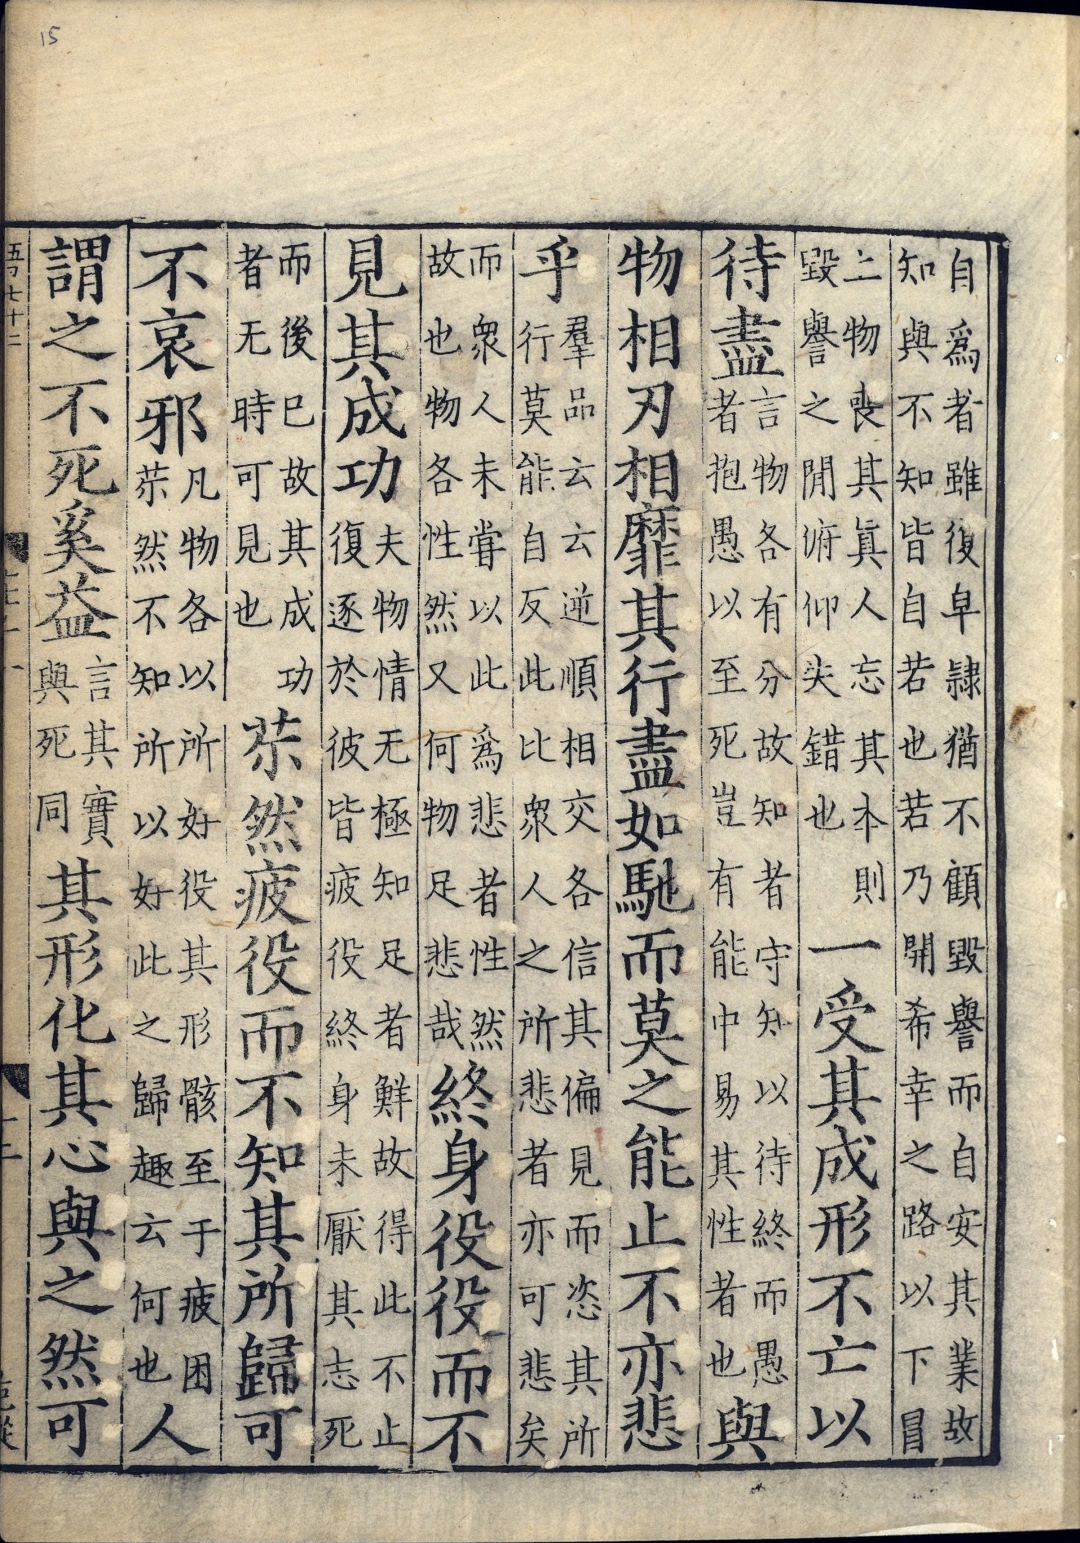 15
自爲者雖復皁隷猶不顧毀譽而自安其業故
知與不知皆自若也若乃開希幸之路以下冒
上物喪其眞人忘其本則
毀譽之閒俯仰失錯也
一受其成形不亡以
待盡
言物各有分故知者守知以待終而愚
者抱愚以至死豈有能中易其性者也
與
物相刃相靡其行盡如馳而莫之能止不亦悲
乎
羣品云云逆順相交各信其偏見而恣其所
行莫能自反此比衆人之所悲者亦可悲矣
而衆人未嘗以此爲悲者性然
故也物各性然又何物足悲哉
終身役役而不
見其成功
夫物情无極知足者鮮故得此不止
復逐於彼皆疲役終身未厭其志死
而後已故其成功
者无時可見也
苶然疲役而不知其所歸可
不哀邪
凡物各以所好役其形骸至于疲困
苶然不知所以好此之歸趣云何也
人
謂之不死奚益
言其實
與死同
其形化其心與之然可